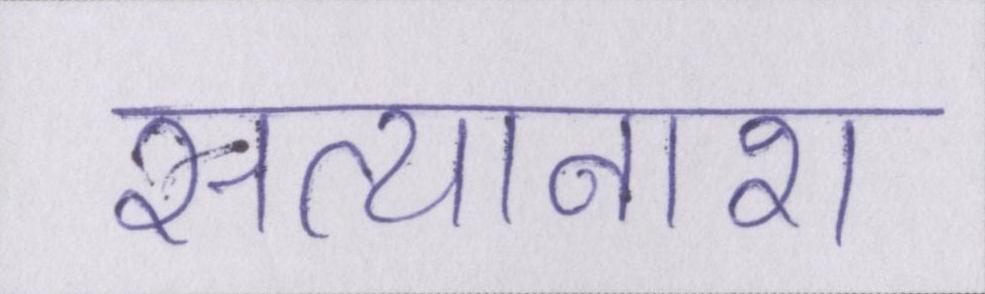 सत्यानाश